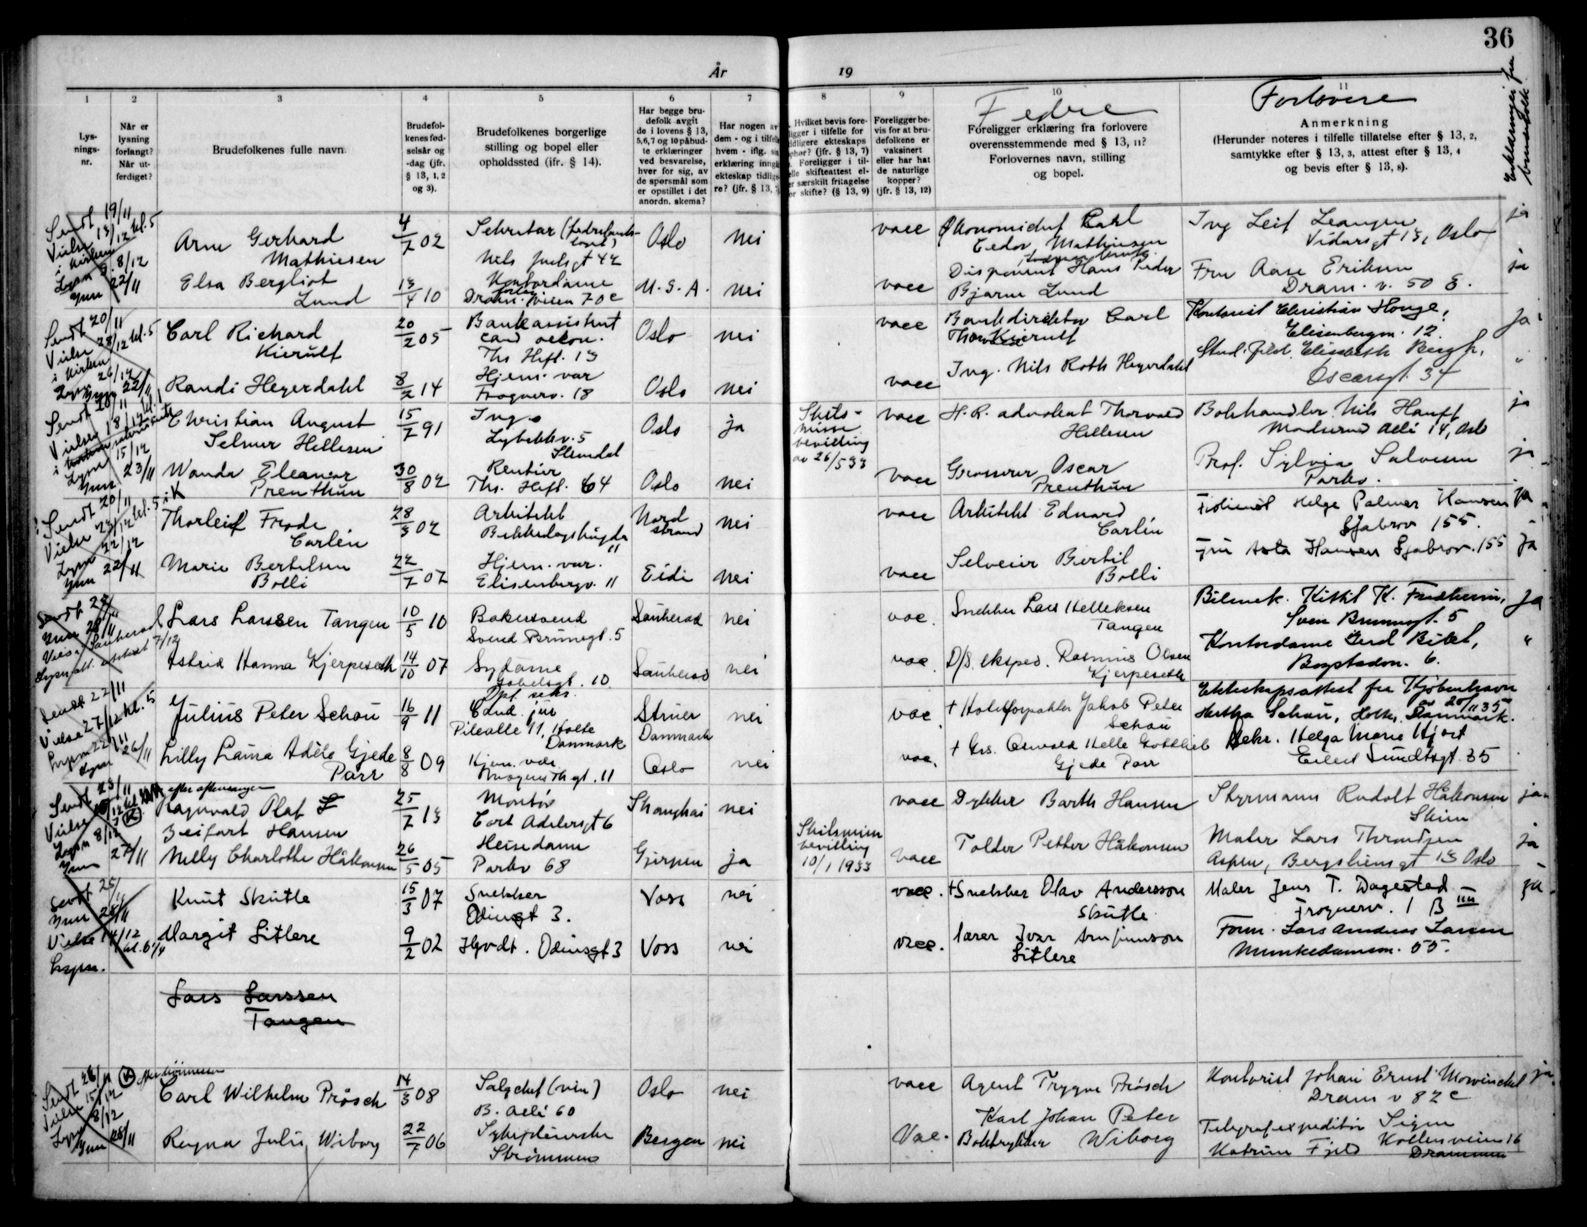 36
År
19
1
2
3
4
5
6
7
8
9
10
11
Lys-
nings-
nr.
Når er
lysning
forlangt?
Når ut-
ferdiget?
Brudefolkenes fulle navn.
Brudefol-
kenes fød-
selsår og
-dag (jfr.
§ 13, 1, 2
og 3).
Brudefolkenes borgerlige
stilling og bopel eller
opholdssted (ifr. § 14).
Har begge bru-
defolk avgitt
de i lovens § 13,
5, 6, 7 og 10 påbud-
te erklæringer
ved besvarelse,
hver for sig, av
de spørsmål som
er opstillet i det
anordn. skema?
Har nogen av
dem - og i tilfelle
hvem - iflg.
erklæring inngått
ekteskap tidlige-
re? (jfr. § 13,
Hvilket bevis fore-
ligger i tilfelle for
tidligere ekteskaps
ophør? (jfr. § 13, 7)
Foreligger i til-
felle skifteattest el-
er særskilt fritagelse
skifte? (§ 13, 9)
Foreligger be-
vis for at bru-
defolkene er
vaksinert
eller har hat
de naturlige
kopper?
(jfr. § 13, 12)
Fedre
Foreligger erklæring fra forlovere
overensstemmende med § 13, 11?
Forlovernes navn, stilling
og bopel.
Forlovere
Anmerkning
(Herunder noteres i tilfelle tillatelse efter § 13, 2,
samtykke efter § 13, 3, attest efter § 13, 4
og bevis efter § 13, 8).
Erklæringer fra
brudefolk
Sendt 19/11
Vielse 13/12 kl. 5
i kirken
Lysn 8/12
22/11
Arne Gerhard
Mathiesen
4/7 02
Sekretær
Niels Juelsgt 42
Oslo
nei
vacc
Økonomichef Carl
Eedor Mathiesen
Ing Leif Leangen
Vidarsgt 13, Oslo
ja
Elsa Bergliot
Lund
13/4 10
Kontordame
Dram. veien 70 c
U.S.A.
nei
vacc
Disponent Hans Peder
Bjarne Lund
Fru Aase Eriksen
Dram. v. 50 E.
ja
Sendt 20/11
Vielse 28/12 kl. 5
i kirken
22/11
Carl Richard
Kierulf
20/2 05
Bankassistent
cand oecon.
Ths Heft. 13
Oslo
nei
vacc
Bankdirektør Carl
Kierulf
Kontorist Christian Hauge,
Elisenbergvn. 12.
ja
Randi Heyerdahl
8/2 14
Hjem. vær
Frognerv. 18
Oslo
nei
vacc
Ing. Nils Roth Heyerdahl
Stud. filol. Elisabeth Bergh,
Oscarsgt. 34
"
Sendt 20/11
Vielse 18/12
Lysn 15/12
23/11
Christian August
Selmer Hellesen
15/7 91
Ing.
Lybekkv. 5
Slemdal
Oslo
ja
Skils-
misse
bevilling
av 26/5 33
vacc
H.R. advokat Thorvald
Hellesen
Bokhandler Nils Hauff
Madserud Allé 14, Oslo
ja
Wanda Eleanor
Prenthun
30/8 02
Rentier
Ths. Heft. 64
Oslo
nei
vacc
Grosserer Oscar
Prenthun
Prof. Sylvia Salvesen
Parkv.
ja
Sendt 20/11
Vielse 23/12 kl. 5 i K
Lysn 22/12
22/11
Thorleif Frode
Carlén
28/3 02
Arkitekt
Bekkelagshøgda
11
Nord
strand
nei
vacc
Arkitekt Edward
Carlén
Helge Palmer Hansen
Ljabrov 155.
ja
Marie Bertelsen
Bolli
22/7 07
Hjem. vær.
Elisenbergv. 11
Eidi
nei
vacc
Selveier Bertil
Bolli
Fru Asta Hansen Ljabrov. 155
ja
Lars Larssen Tangen
10/5 10
Bakersvend
Svend Brunsgt. 5
Sauherad
nei
vac.
Snekker Lars Helleksen
Tangen
Bilmek. Kittil K. Fredheim,
Sven Brunsgt. 5
ja
Astrid Hanna Kjerpeseth
14/10 07
Sydame
Gabelsgt. 10
Sauherad
nei
vac.
D/S eksped. Rasmus Olsen
Kjerpeseth
Kontordame Gerd
Bogstadvn. 6.
"
Sendt 22/11
Vielse 27/12 kl. 5
Lysn 22/11
26/11
Julius Peter Schou
16/9 11
Cand. jur
Pilealle 11, Holte
Danmark
Struer
Danmark
nei
vac.
Jakob Peter
Schou
Ekteskapsattest fra Kjøbenhavn
20/11 35
Hertha Schou, Holte, Danmark.
Lilly Laura Adèle Gjede
Parr
8/8 09
Hjem. vær
11
Oslo
nei
vac.
† Grs. Oswald Helle Gottlieb
Gjede Parr
Helga Marie Hjort
Eilert Sundtsgt. 35
Sendt 23/11
Lysn 8/12
27/11
Ragnvald Olaf
Zeifart Hansen
25/7 13
Montør
Cort Adelersgt 6
Shanghai
nei
vacc
Dykker Barth Hansen
Styrmann Rudolf Håkonsen
Skien
ja
Nelly Charlotte Håkonsen
26/5 05
Heisedame
Parkv 68
Gjerpen
ja
Skilsmisse
bevilling
10/1 1933
vacc
Tolder Petter Håkonsen
Maler Lars Throndsen
Aspen, Bergsliensgt 13 Oslo
ja
Sendt 25/11
28/11
Vielse 14/12
Lysn.
Knut Skutle
15/3 07
Snekker
Odinsgt 3.
Voss
nei
vacc.
† Snekker Olav Andersson
Skutle
Maler Jens T. Dagestad
Frognerv. 1 B
ja
Margit Litlere
9/2 02
Hgvdt. Odinsgt 3
Voss
nei
vacc.
lærer Ivar Arnfinnson
Litlere
Form. Lars Andreas Larsen
Munkedamsvn. 55.
Lars Larssen
Tangen
Sendt 26/11
Vielse 15/12
Lysn 8/12
28/11
Carl Wilhelm Prösch
14/3 08
Salgchef (vin)
B. Allé 60
Oslo
nei
vacc
Agent Trygve Prösch
Kontorist Johan Ernst Mowinckel
Dram v 82 c
ja
Ragna Julie Wiborg
22/7 06
Strømmens
Bergen
nei
Vac.
Karl Johan Peter
Boktrykker Wiborg
Telegrafexpeditør Signe
Katrine Fjeld
Kollensveien 16
Drammen